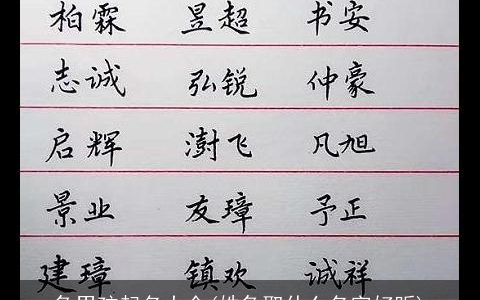 柏霖 昱超 书安
志诚 弘锐 仲豪
启辉 澍飞 凡旭
景业 友璋 予正
建璋 镇欢 诚祥